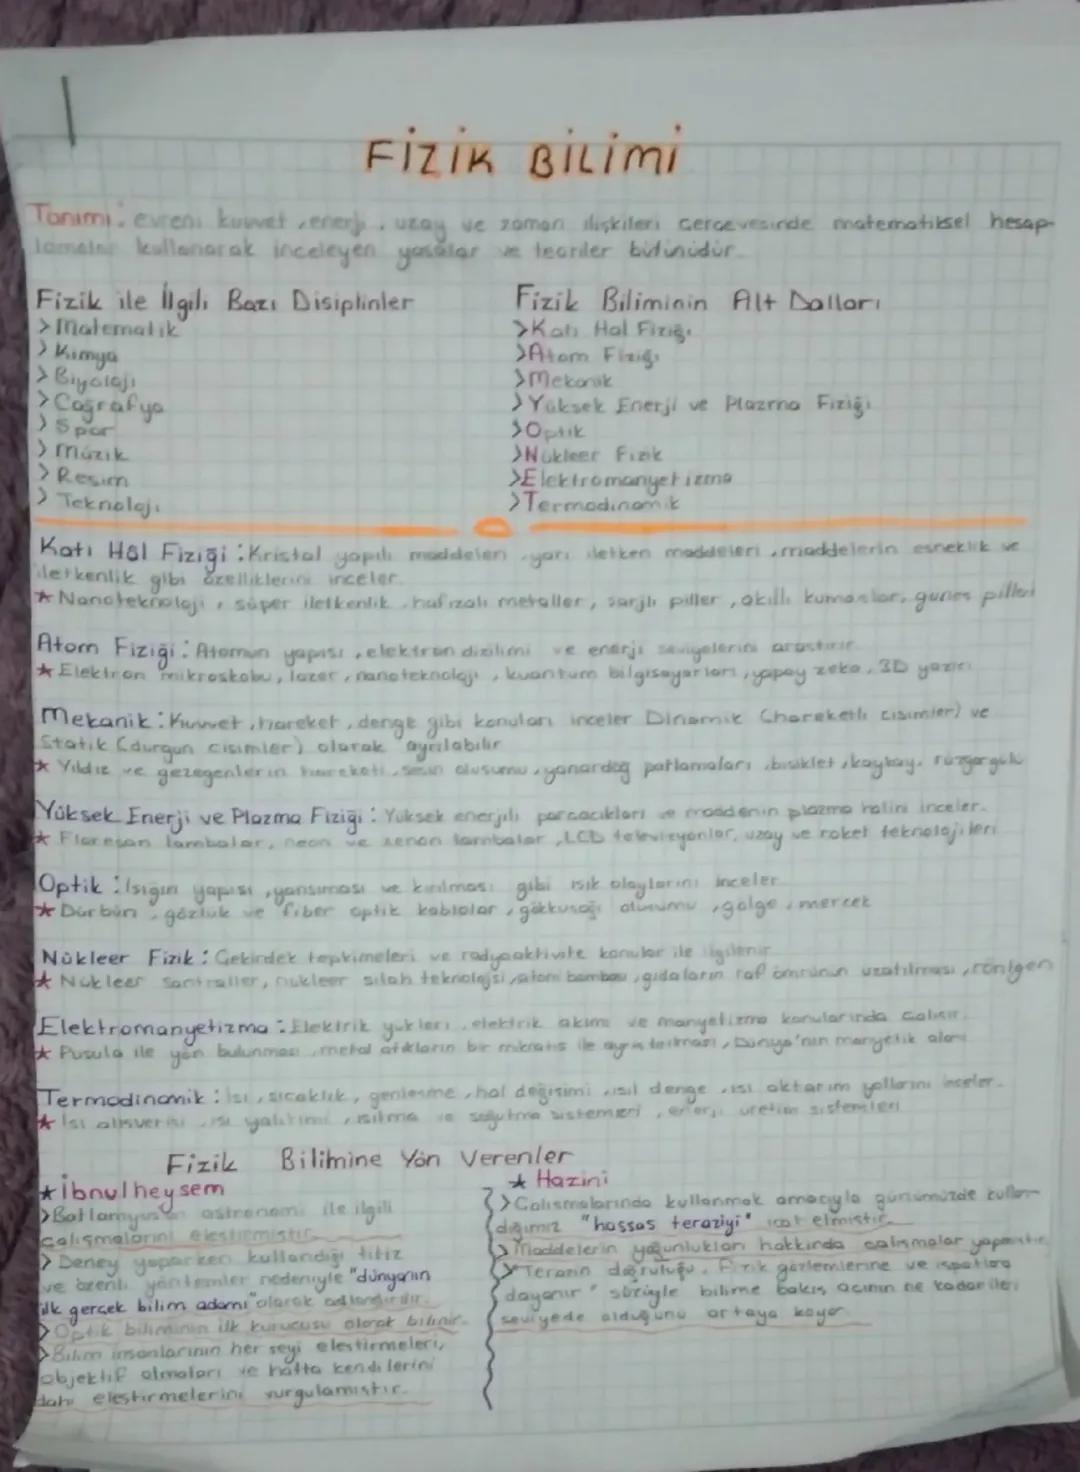 FİZİK BİLİMİ
Tanımı: evreni kuvvet, enerji, uzay ve zaman ilişkileri çerçevesinde matematiksel hesap-
lamalar kullanarak inceleyen yasalar ve teoriler bütünüdür.
Fizik ile İlgili Bazı Disiplinler
>Matematik
>Kimya
>Biyoloji
>Coğrafya
>Spor
>Müzik
>Resim
>Teknoloji
Fizik Biliminin Alt Dalları
>Katı Hal Fiziği
>Atom Fiziği
>Mekanik
>Yüksek Enerji ve Plazma Fiziği
>Optik
>Nükleer Fizik
>Elektromanyetizma
>Termodinamik
Katı Hâl Fiziği: Kristal yapılı maddeleri, yarı iletken maddeleri, maddelerin esneklik ve
iletkenlik gibi özelliklerini inceler.
★ Nanoteknoloji, süper iletkenlik, hafızalı metaller, şarjlı piller, akıllı kumaşlar, güneş pilleri
Atom Fiziği: Atomun yapısı, elektron dizilimi ve enerji seviyelerini araştırır.
★ Elektron mikroskobu, lazer, nanoteknoloji, kuantum bilgisayarları, yapay zeka, 3D yazıcı
Mekanik: Kuvvet, hareket, denge gibi konuları inceler Dinamik (hareketli cisimler) ve
Statik (durgun cisimler) olarak ayrılabilir
★ Yıldız ve gezegenlerin hareketi, sesin oluşumu, yanardağ patlamaları, bisiklet, kaykay, rüzgargülü
Yüksek Enerji ve Plazma Fiziği: Yüksek enerjili parçacıkları ve maddenin plazma halini inceler.
★ Floresan lambalar, neon ve xenon lambalar, LCD televizyonlar, uzay ve roket teknolojileri
Optik: Işığın yapısı, yansıması ve kırılması gibi ışık olaylarını inceler
★ Dürbün, gözlük ve fiber optik kablolar, gökkuşağı oluşumu, gölge, mercek
Nükleer Fizik: Çekirdek tepkimeleri ve radyoaktivite konular ile ilgilenir
★ Nükleer santraller, nükleer silah teknolojisi, atom bombası, gıdaların raf ömrünün uzatılması, röntgen
Elektromanyetizma: Elektrik yükleri, elektrik akımı ve manyetizma konularında çalışır.
★ Pusula ile yön bulunması, metal atıkların bir mıknatıs ile ayrıştırılması, Dünya'nın manyetik alanı
Termodinamik: Isı, sıcaklık, genleşme, hal değişimi, ısıl denge, ısı aktarım yollarını inceler.
★ Isı alışverişi, ısı yalıtımı, ısıtma ve soğutma sistemleri, enerji üretim sistemleri
Fizik Bilimine Yön Verenler
★ İbnulheysem
>Batlamyus'un astronomi ile ilgili
çalışmalarını eleştirmiştir.
> Deney yaparken kullandığı titiz
ve özenli yöntemler nedeniyle "dünyanın
ilk gerçek bilim adamı" olarak adlandırılır.
> Optik biliminin ilk kurucusu olarak bilinir.
>Bilim insanlarının her şeyi eleştirmeleri,
objektif olmaları ve hatta kendilerini
dahi eleştirmelerini vurgulamıştır.
★ Hazini
>Çalışmalarında kullanmak amacıyla günümüzde kullan-
dığımız "hassas teraziyi" icat etmiştir.
>Maddelerin yoğunlukları hakkında çalışmalar yapmıştır
>"Terazin doğruluğu, fizik gözlemlerine ve ispatlara
dayanır" sözüyle bilime bakış açının ne kadar ileri
seviyede olduğunu ortaya koyar.